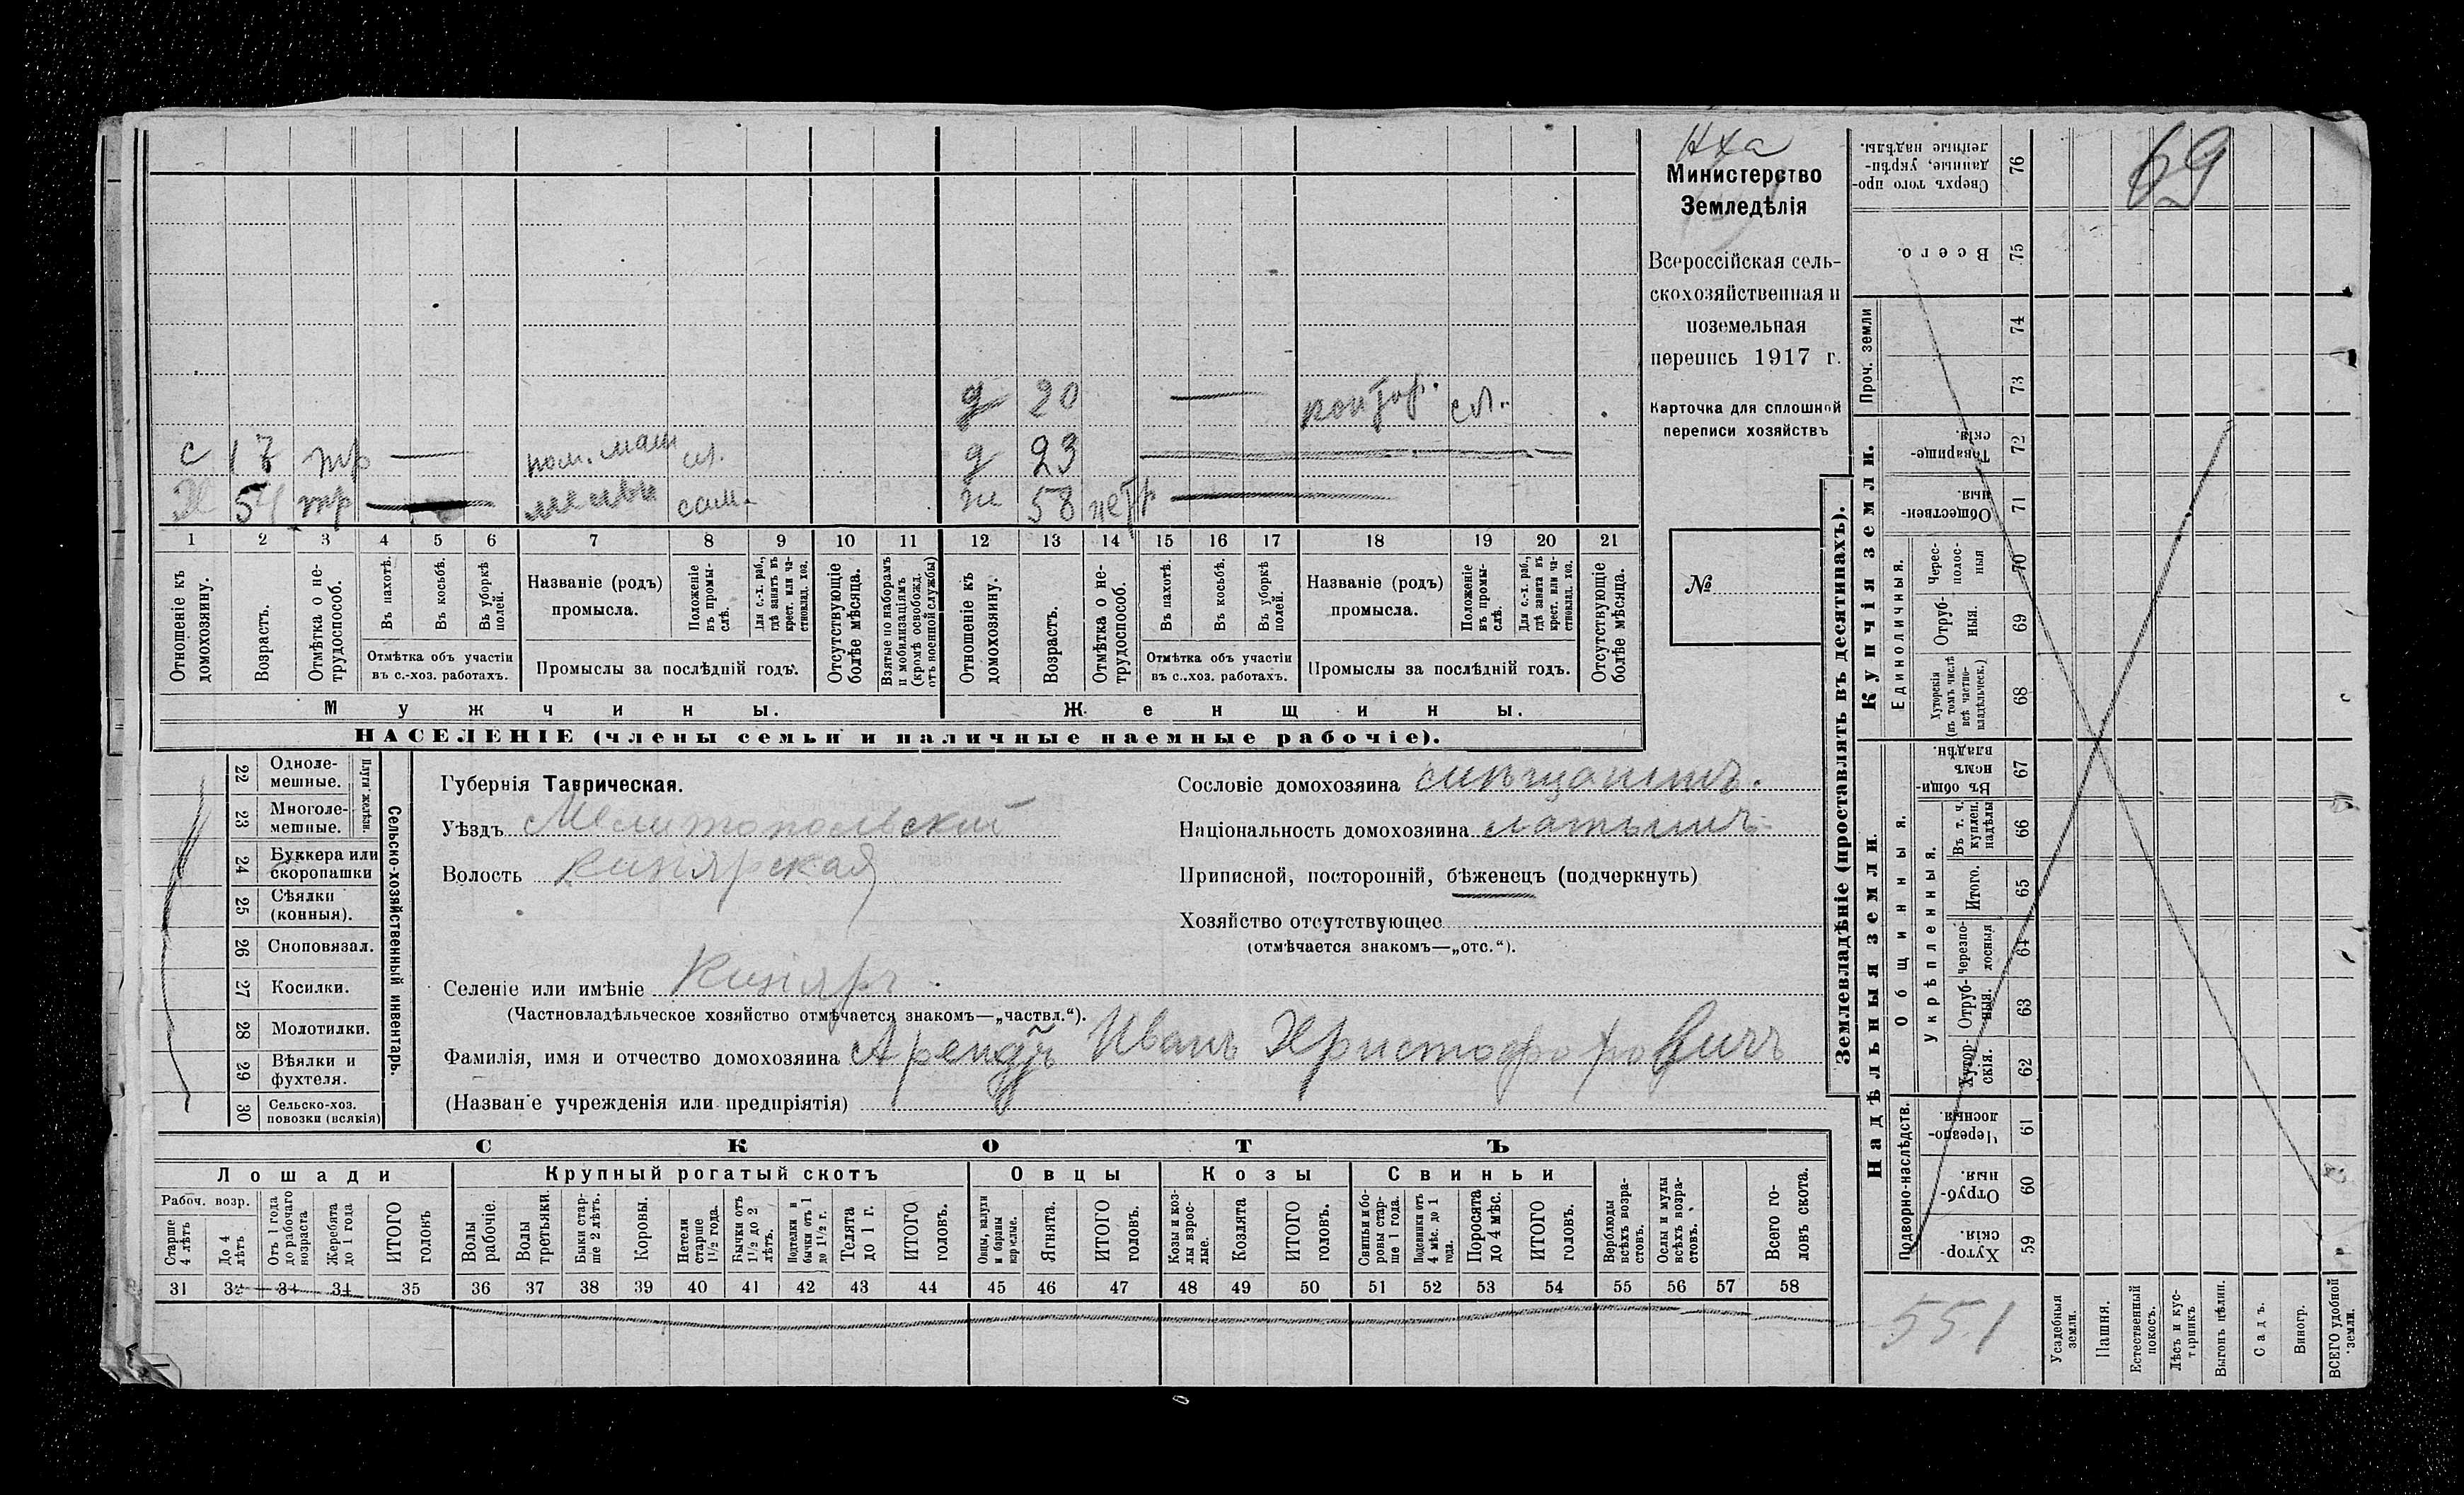 Нха
Министерство
Земледѣлія
Всероссійская сель-
скохозяйственная и
поземельная
перепись 1917 г.
Карточка для сплошной
переписи хозяйствъ
№
69
д 20 — контор. сл.
с 17 тр — пом. маш сл. д 23 —
Х 54 тр — сам. ж 58 нетр —
1 2 3 4 5 6 7 8 9 10 11 12 13 14 15 16 17 18 19 20 21
Отношеніе къ домохозяину.
Возрастъ.
Отмѣтка о не-трудоспособ.
Въ пахотѣ.
Въ косьбѣ.
Въ уборкѣ полей.
Отмѣтка объ участіи
въ с.-хоз. работахъ.
Названіе (родъ)
промысла.
Положеніе въ промы-слѣ.
Для с.-х. раб., гдѣ занятъ въ крест. или ча-стновлад. хоз.
Промыслы за послѣдній годъ.
Отсутствующіе болѣе мѣсяца.
Взятые по наборамъ и мобилизаціямъ (кромѣ освобожд. отъ военной службы)
Отношеніе къ домохозяину.
Возрастъ.
Отмѣтка о не-трудоспособ.
Въ пахотѣ.
Въ косьбѣ.
Въ уборкѣ полей.
Отмѣтка объ участіи
въ с.-хоз. работахъ.
Названіе (родъ)
промысла.
Положеніе въ промы-слѣ.
Для с.-х. раб., гдѣ занята въ крест. или ча-стновлад. хоз.
Промыслы за послѣдній годъ.
Отсутствующіе болѣе мѣсяца.
Мужчины. Женщины.
НАСЕЛЕНІЕ (члены семьи и наличные наемные рабочіе).
22 Одноле-мешные.
23 Многоле-мешные.
Плуги желѣзн.
24 Буккера или скоропашки
25 Сѣялки (конныя).
26 Сноповязал.
27 Косилки.
28 Молотилки.
29 Вѣялки и фухтеля.
30 Сельско-хоз. повозки (всякія)
Сельско-хозяйственный инвентарь.
Губернія Таврическая.
Уѣздъ Мелитопольскій
Волость Кизіярская
Селеніе или имѣніе Кизіяръ
(Частновладѣльческое хозяйство отмѣчается знакомъ—„частвл.“).
Фамилія, имя и отчество домохозяина Арендъ Иванъ Христофоровичъ
(Названіе учрежденія или предпріятія)
Сословіе домохозяина мѣщанинъ.
Національность домохозяина латышъ
Приписной, посторонній, бѣженецъ (подчеркнуть)
Хозяйство отсутствующее
(отмѣчается знакомъ—„отс.“).
СКОТЪ
Лошади Крупный рогатый скотъ Овцы Козы Свиньи
Рабоч. возр.
Старше 4 лѣтъ
До 4 лѣтъ
Отъ 1 года до рабочаго возраста
Жеребята до 1 года
ИТОГО головъ
Волы рабочіе.
Волы третьяки.
Быки стар-ше 2 лѣтъ.
Коровы.
Нетели старше 1½ года.
Бычки отъ 1½ до 2 лѣтъ.
Подтелки и бычки отъ 1 до 1½ г.
Телята до 1 г.
ИТОГО головъ.
Овцы, валухи и бараны взрослые.
Ягнята.
ИТОГО головъ.
Козы и коз-лы взрос-лые.
Козлята
ИТОГО головъ.
Свиньи и бо-ровы стар-ше 1 года.
Подсвинки отъ 4 мѣс. до 1 года.
Поросята до 4 мѣс.
ИТОГО головъ.
Верблюды всѣхъ возра-стовъ.
Ослы и мулы всѣхъ возра-стовъ.
Всего го-ловъ скота.
31 32 34 34 35 36 37 38 39 40 41 42 43 44 45 46 47 48 49 50 51 52 53 54 55 56 57 58
Землевладѣніе (проставлять въ десятинахъ).
Сверхъ того про-данные, укрѣп-ленные надѣлы. 76
Всего. 75
Проч. земли 74
73
Купчія земли.
Товарище-скія. 72
Обществен-ныя. 71
Единоличныя.
Черес-полос-ныя 70
Отруб-ныя. 69
Хуторскія (въ томъ числѣ всѣ частно-владѣльческ.) 68
Надѣльныя земли.
Общинныя.
Въ общин-номъ владѣн. 67
Укрѣпленныя.
Въ т. ч. куплен. надѣлы 66
Итого. 65
Черезпо-лосныя 64
Отруб-ныя. 63
Хутор-скія. 62
Подворно-наслѣдств.
Черезпо-лосныя. 61
Отруб-ныя. 60
Хутор-скія. 59
551
Усадебныя земли.
Пашня.
Естественный покосъ.
Лѣсъ и кус-тарникъ
Выгонъ цѣлин.
Садъ.
Виногр.
ВСЕГО удобной земли.